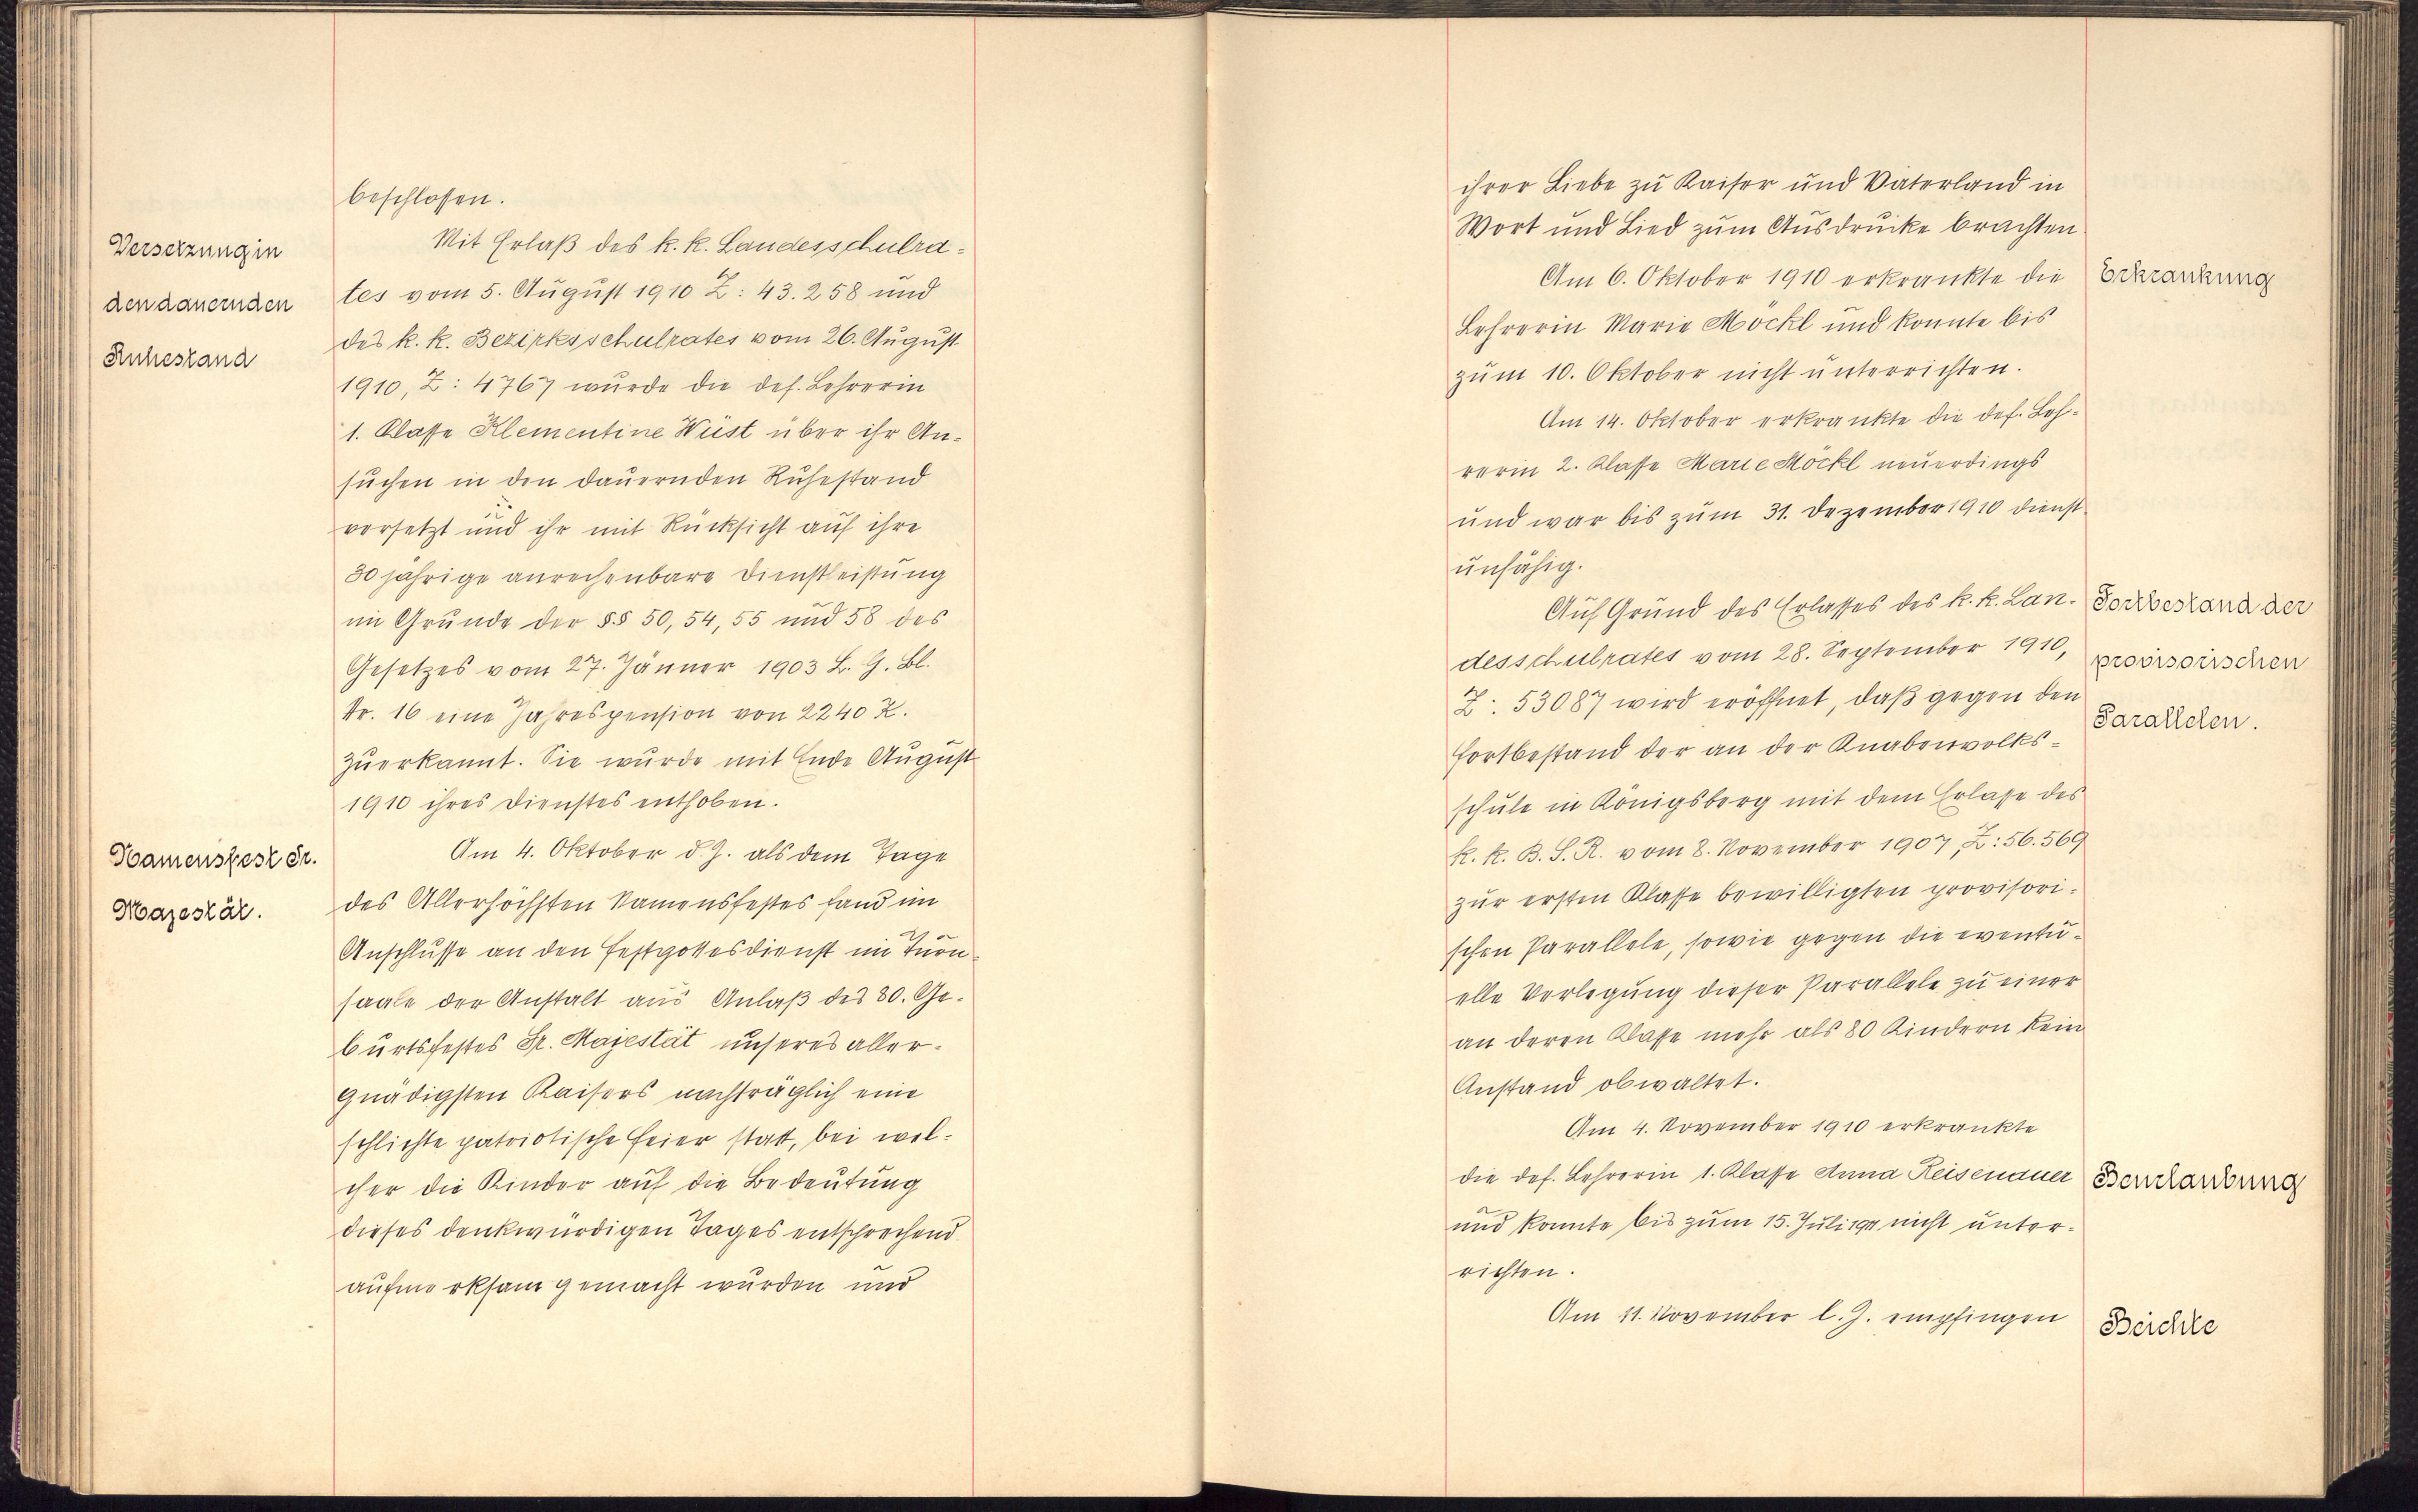 beschlossen.
Versetzung in
den dauernden
Ruhestand
Mit Erlaß des k. k. Landesschulra-
tes vom 5. August 1910 Z: 43.258 und
des k. k. Bezirksschulrates vom 26. August
1910, Z: 4767 wurde die def. Lehrerin
1. Klasse Klementine Wüst über ihr An-
suchen in den dauernden Ruhestand
versetzt und ihr mit Rücksicht auf ihre
30 jährige anrechenbare Dienstleistung
im Grunde der §§ 50, 54, 55 und 58 des
Gesetzes vom 27. Jänner 1903 L. G. Bl.
Nr. 16 eine Jahrespension von 2240 K.
zuerkannt. Sie wurde mit Ende August
1910 ihres Dienstes enthoben.
Namensfest Sr.
Majestät.
Am 4. Oktober d. J. als dem Tage
des Allerhöchsten Namensfestes fand im
Anschlusse an den Festgottesdienst im Turn-
saale der Anstalt aus Anlaß des 80. Ge-
burtsfestes Sr. Majestät unseres aller-
gnädigsten Kaisers nachträglich eine
schlichte patriotische Feier statt, bei wel-
cher die Kinder auf die Bedeutung
dieses denkwürdigen Tages entsprechend
aufmerksam gemacht wurden und
ihrer Liebe zu Kaiser und Vaterland in
Wort und Lied zum Ausdrucke brachten.
Am 6. Oktober 1910 erkrankte die
Erkrankung
Lehrerin Marie Möckl und konnte bis
zum 10. Oktober nicht unterrichten.
Am 14. Oktober erkrankte die def. Leh-
rerin 2. Klasse Marie Möckl neuerdings
und war bis zum 31. Dezember 1910 dienst-
unfähig.
Auf Grund des Erlasses des k. k. Lan-
Fortbestand der
provisorischen
Parallelen.
desschulrates vom 28. September 1910,
Z: 53087 wird eröffnet, daß gegen den
Fortbestand der an der Knabenvolks-
schule in Königsberg mit dem Erlasse des
k. k. B. S. R. vom 8. November 1907, Z: 56.569
zur ersten Klasse bewilligten provisori-
schen Parallele, sowie gegen die eventu-
elle Verlegung dieser Parallele zu einer
an deren Klasse mehr als 80 Kindern kein
Anstand obwaltet.
Am 4. November 1910 erkrankte
die def. Lehrerin 1. Klasse Anna Reisenauer
Beurlaubung
und konnte bis zum 15. Juli 1911 nicht unter-
richten.
Am 11. November l. J. empfingen
Beichte